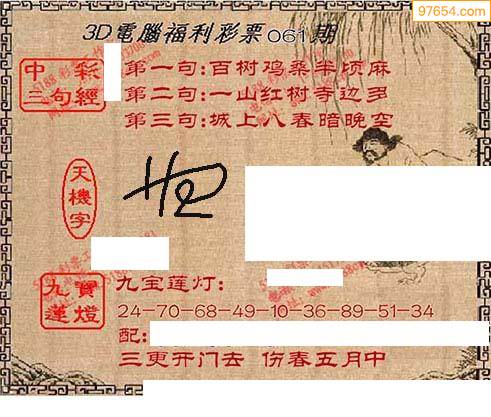 97654.com
3D電腦福利彩票061期
中彩三句經
第一句:百树鸡桑半顷麻
第二句:一山红树寺边多
第三句:城上八春暗晚空
天機字
九寶蓮燈
九宝莲灯:
24-70-68-49-10-36-89-51-34
配:
三更开门去 伤春五月中